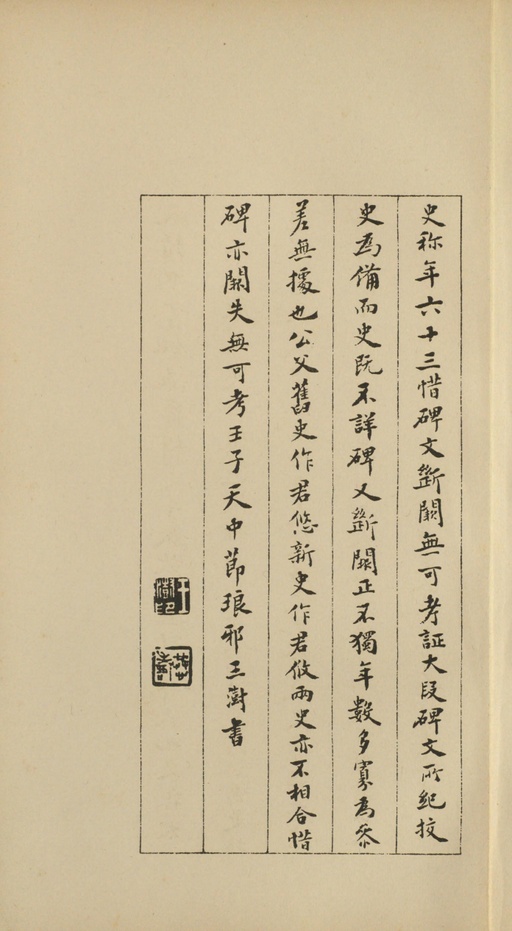 史称年六十三惜碑文斷闕無可考証大段碑文所紀挍
史爲備而史既不詳碑又斷闕正不獨年數多寡爲叅
差無據也公父舊史作君悠新史作君攸兩史亦不相合惜
碑亦闕失無可考壬子天中節琅邪王澍書
王澍印